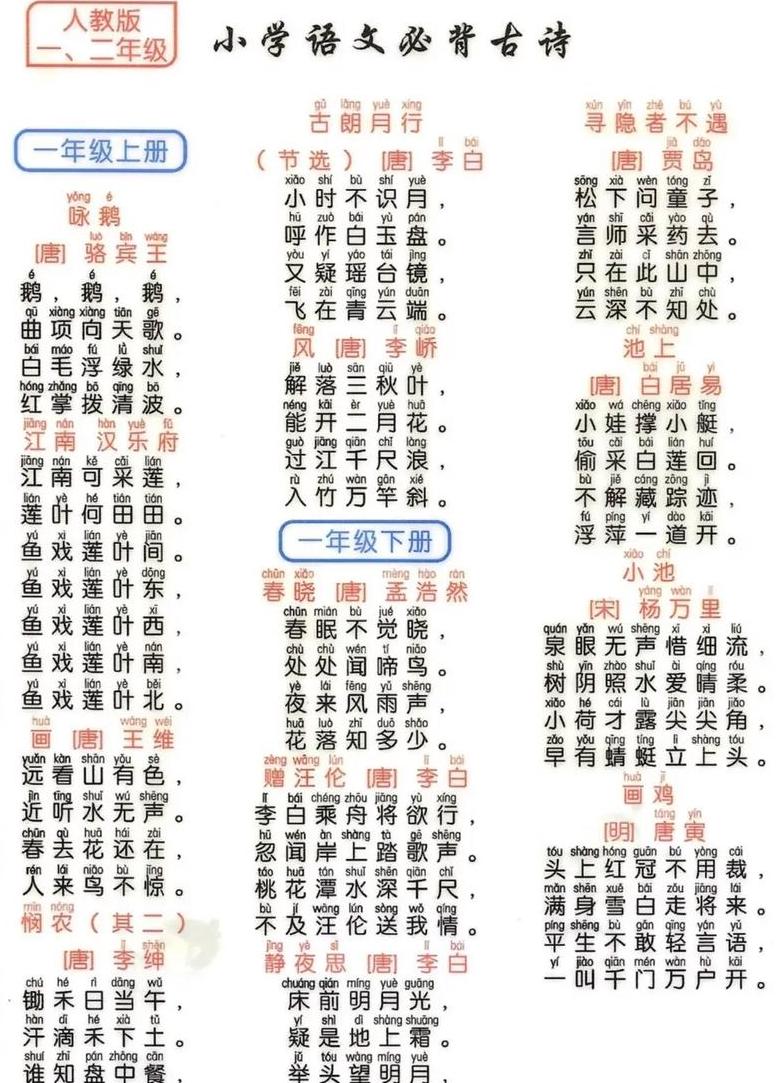 人教版
一、二年级
小学语文必背古诗
一年级上册
yǒng é
咏鹅
luò bīn wáng
[唐] 骆宾王
é é é
鹅，鹅，鹅，
qū xiàng xiàng tiān gē
曲项向天歌。
bái máo fú lǜ shuǐ
白毛浮绿水，
hóng zhǎng bō qīng bō
红掌拨清波。
jiāng nán hàn yuè fǔ
江南 汉乐府
jiāng nán kě cǎi lián
江南可采莲，
lián yè hé tián tián
莲叶何田田。
yú xì lián yè jiān
鱼戏莲叶间。
yú xì lián yè dōng
鱼戏莲叶东，
yú xì lián yè xī
鱼戏莲叶西，
yú xì lián yè nán
鱼戏莲叶南，
yú xì lián yè běi
鱼戏莲叶北。
huà wáng wéi
画 [唐] 王维
yuǎn kàn shān yǒu sè
远看山有色，
jìn tīng shuǐ wú shēng
近听水无声。
chūn qù huā hái zài
春去花还在，
rén lái niǎo bù jīng
人来鸟不惊。
mǐn nóng
悯农（其二）
lǐ shēn
[唐] 李绅
chú hé rì dāng wǔ
锄禾日当午，
hàn dī hé xià tǔ
汗滴禾下土。
shuí zhī pán zhōng cān
谁知盘中餐，
gǔ lǎng yuè xíng
古朗月行
lǐ bái
（节选）[唐] 李白
xiǎo shí bù shí yuè
小时不识月，
hū zuò bái yù pán
呼作白玉盘。
yòu yí yáo tái jìng
又疑瑶台镜，
fēi zài qīng yún duān
飞在青云端。
fēng lǐ qiáo
风 [唐] 李峤
jiě luò sān qiū yè
解落三秋叶，
néng kāi èr yuè huā
能开二月花。
guò jiāng qiān chǐ làng
过江千尺浪，
rù zhú wàn gān xié
入竹万竿斜。
一年级下册
chūn xiǎo mèng hào rán
春晓 [唐] 孟浩然
chūn mián bù jué xiǎo
春眠不觉晓，
chù chù wén tí niǎo
处处闻啼鸟。
yè lái fēng yǔ shēng
夜来风雨声，
huā luò zhī duō shǎo
花落知多少。
zèng wāng lún lǐ bái
赠汪伦 [唐] 李白
lǐ bái chéng zhōu jiāng yù xíng
李白乘舟将欲行，
hū wén àn shàng tà gē shēng
忽闻岸上踏歌声。
táo huā tán shuǐ shēn qiān chǐ
桃花潭水深千尺，
bù jí wāng lún sòng wǒ qíng
不及汪伦送我情。
jìng yè sī lǐ bái
静夜思 [唐] 李白
chuáng qián míng yuè guāng
床前明月光，
yí shì dì shàng shuāng
疑是地上霜。
jǔ tóu wàng míng yuè
举头望明月，
xún yǐn zhě bú yù
寻隐者不遇
jiǎ dǎo
[唐] 贾岛
sōng xià wèn tóng zǐ
松下问童子，
yán shī cǎi yào qù
言师采药去。
zhǐ zài cǐ shān zhōng
只在此山中，
yún shēn bù zhī chù
云深不知处。
chí shàng
池上
bái jū yì
[唐] 白居易
xiǎo wá chēng xiǎo tǐng
小娃撑小艇，
tōu cǎi bái lián huí
偷采白莲回。
bù jiě cáng zōng jì
不解藏踪迹，
fú píng yí dào kāi
浮萍一道开。
xiǎo chí
小池
yáng wàn lǐ
[宋] 杨万里
quán yǎn wú shēng xī xì liú
泉眼无声惜细流，
shù yīn zhào shuǐ ài qíng róu
树阴照水爱晴柔。
xiǎo hé cái lù jiān jiān jiǎo
小荷才露尖尖角，
zǎo yǒu qīng tíng lì shàng tóu
早有蜻蜓立上头。
huà jī
画鸡
táng yín
[明] 唐寅
tóu shàng hóng guān bú yòng cái
头上红冠不用裁，
mǎn shēn xuě bái zǒu jiāng lái
满身雪白走将来。
píng shēng bù gǎn qīng yán yǔ
平生不敢轻言语，
yí jiào qiān mén wàn hù kāi
一叫千门万户开。